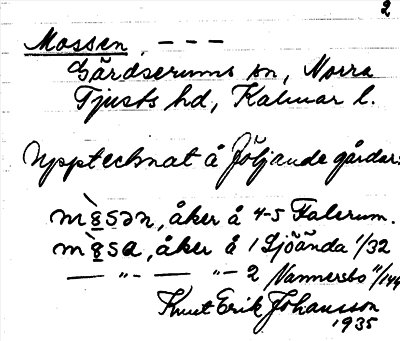 2
Mossen, – – –
Gärdserums sn, Norra
Tjusts hd, Kalmar l.
Upptecknat å följande gårdar:
åker å 4-5 Falerum.
åker å 1 Sjöända 1/32
— „ — — „ — 2 Vannersbo 11/144
Knut Erik Johansson
1935